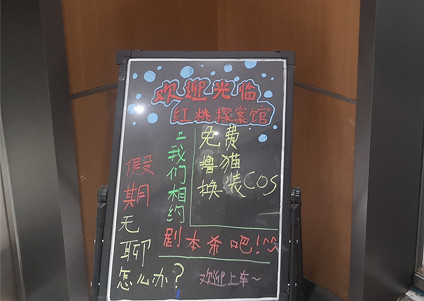 欢迎光临
红桃探案馆
假期无聊
怎么办?
我们相约
免费
撸猫
换装COS
剧本杀吧!
欢迎上车~